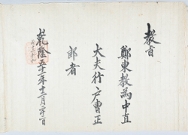 敎旨
鄭東敎爲中直
大夫行戶曹正
郎者
乾隆五十年十二月日